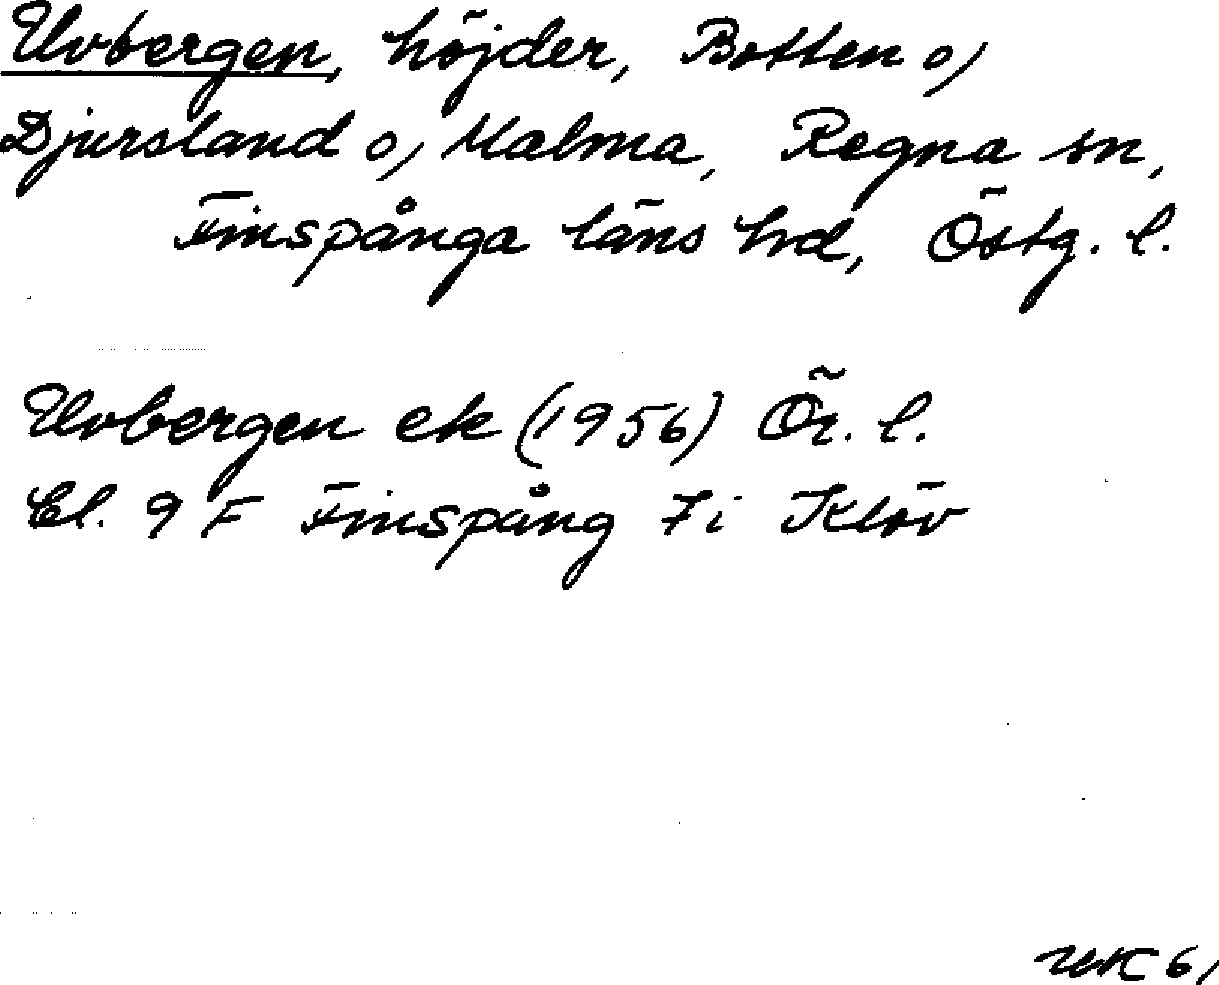 Uvbergen, höjder, Botten o,
Djursland o, Malma, Regna sn,
Finspånga läns hd, Östg. l.
Uvbergen ek (1956) Ör. l.
Bl. 9 F Finspång 7i Klöv